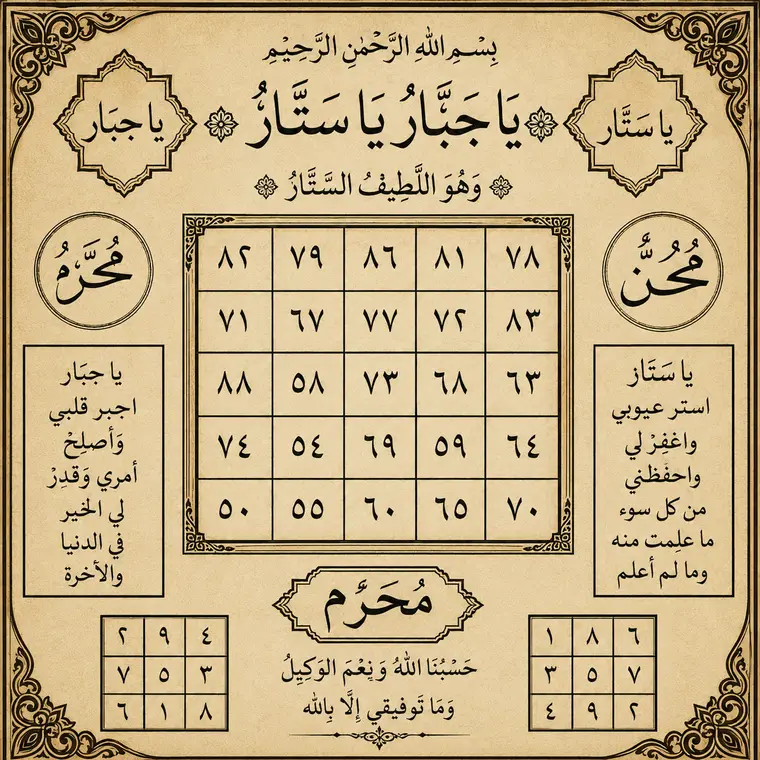 بِسْمِ اللهِ الرَّحْمٰنِ الرَّحِيْمِ
يَا جَبَّارُ يَا سَتَّارُ
يا سَتَّار
يا جبَار
وَهُوَ اللَّطِيْفُ السَّتَّارُ
مُحُنُّ
مُحَرَّمُ
٨٢ ٧٩ ٨٦ ٨١ ٧٨
٧١ ٦٧ ٧٧ ٧٢ ٨٣
٨٨ ٥٨ ٧٣ ٦٨ ٦٣
٧٤ ٥٤ ٦٩ ٥٩ ٦٤
٥٠ ٥٥ ٦٠ ٦٥ ٧٠
يا سَتَاز
استر عيوبي
واغفِرْ لي
واحفَظني
من كل سوء
ما علِمت منه
وما لم أعلم
يا جبَار
اجبر قلبي
وَأصلِحْ
أمري وَقدِرْ
لي الخير
في الدنيا
والأخرة
مُحَرَّم
حَسْبُنَا اللهُ وَنِعْمَ الوَكِيْلُ
وَمَا تَوفيقي إِلَّا بِالله
١ ٨ ٦
٣ ٥ ٧
٤ ٩ ٢
٢ ٩ ٤
٧ ٥ ٣
٦ ١ ٨